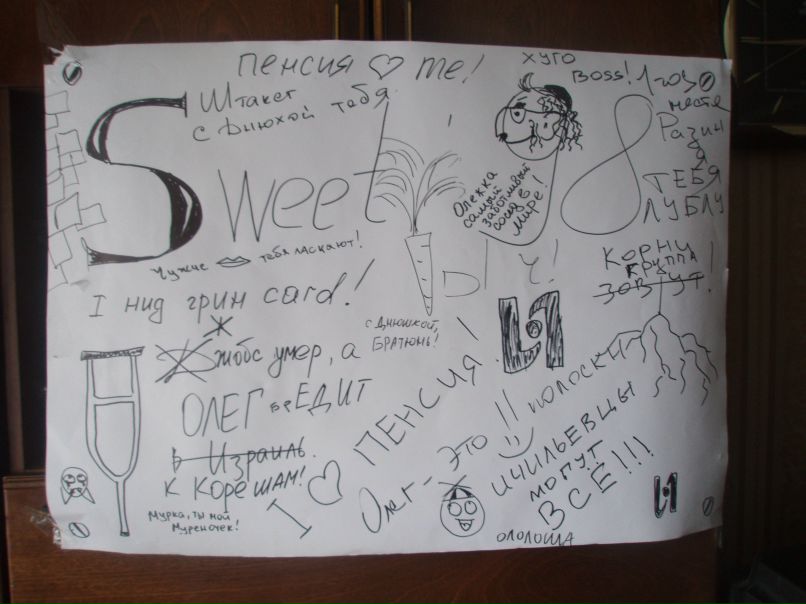 ПЕНСИЯ ♡ me!
ХУГО
BOSS!
Штакет
с днюхой тебя
1-03
месте
Разин
я
ТЕБЯ
ЛУБЛУ
Sweet
Олежка
самый
заботливый
сосед в
мире!
Чужие
тебя ласкают!
КОРНИ
ГРУППА
ЗОВУТ!
I нид грин card!
с Днюшкой,
БРАТЮНЬ!
Ж
Джобс умер, а
ОЛЕГ
ЕДИТ
в Израиль
к КОРЕШАМ!
I ♡ ПЕНСИЯ!
Олег - ЭТО 11 ПОЛОСКИ
ИЧИЛЬЕВЦЫ
МОГУТ
ВСЁ!!!
Мурка, ты мой
Муреночек!
ОЛОЛОША